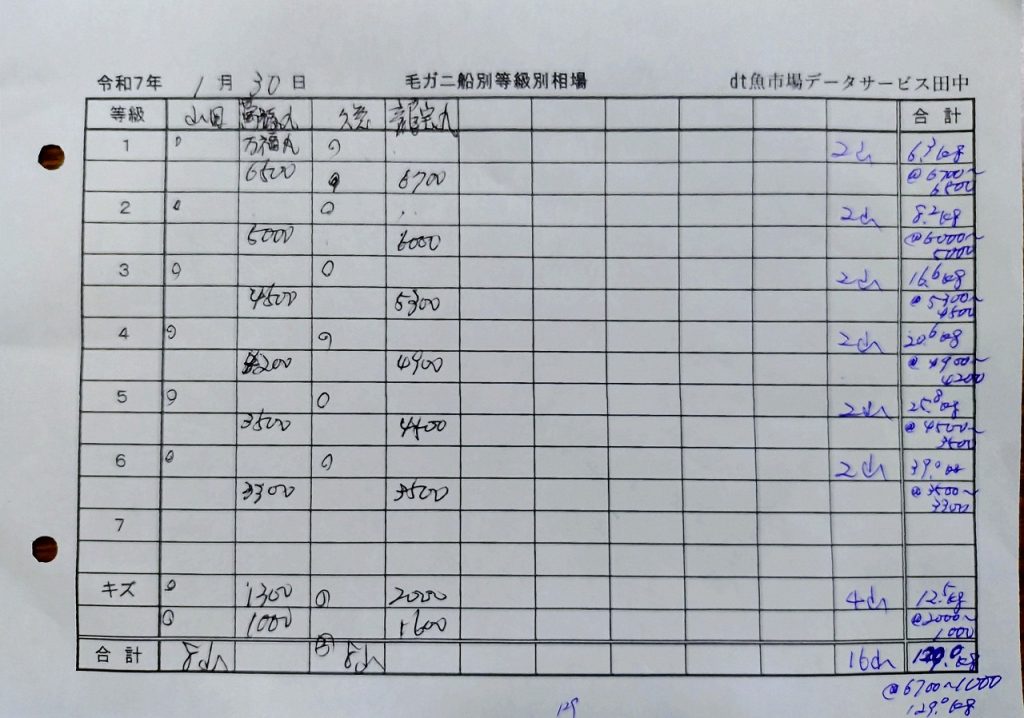 令和7年 1月30日 毛ガニ船別等級別相場 dt魚市場データサービス田中
等級 山田 久慈 龍宝丸 合計
1 万福丸 2山 6.3kg
6500 6700 @6700~6500
2 2山 8.2kg
5000 6000 @6000~5000
3 2山 16.6kg
4500 5300 @5300~4500
4 2山 20.6kg
4200 4900 @4900~4200
5 2山 25.8kg
3500 4500 @4500~3500
6 2山 39.0kg
3300 3500 @3500~3300
7
キズ 1300 2000 4山 12.5kg
1000 1600 @2000~1000
合計 8山 8山 16山 129.0kg
@6700~1000
129 129.0kg